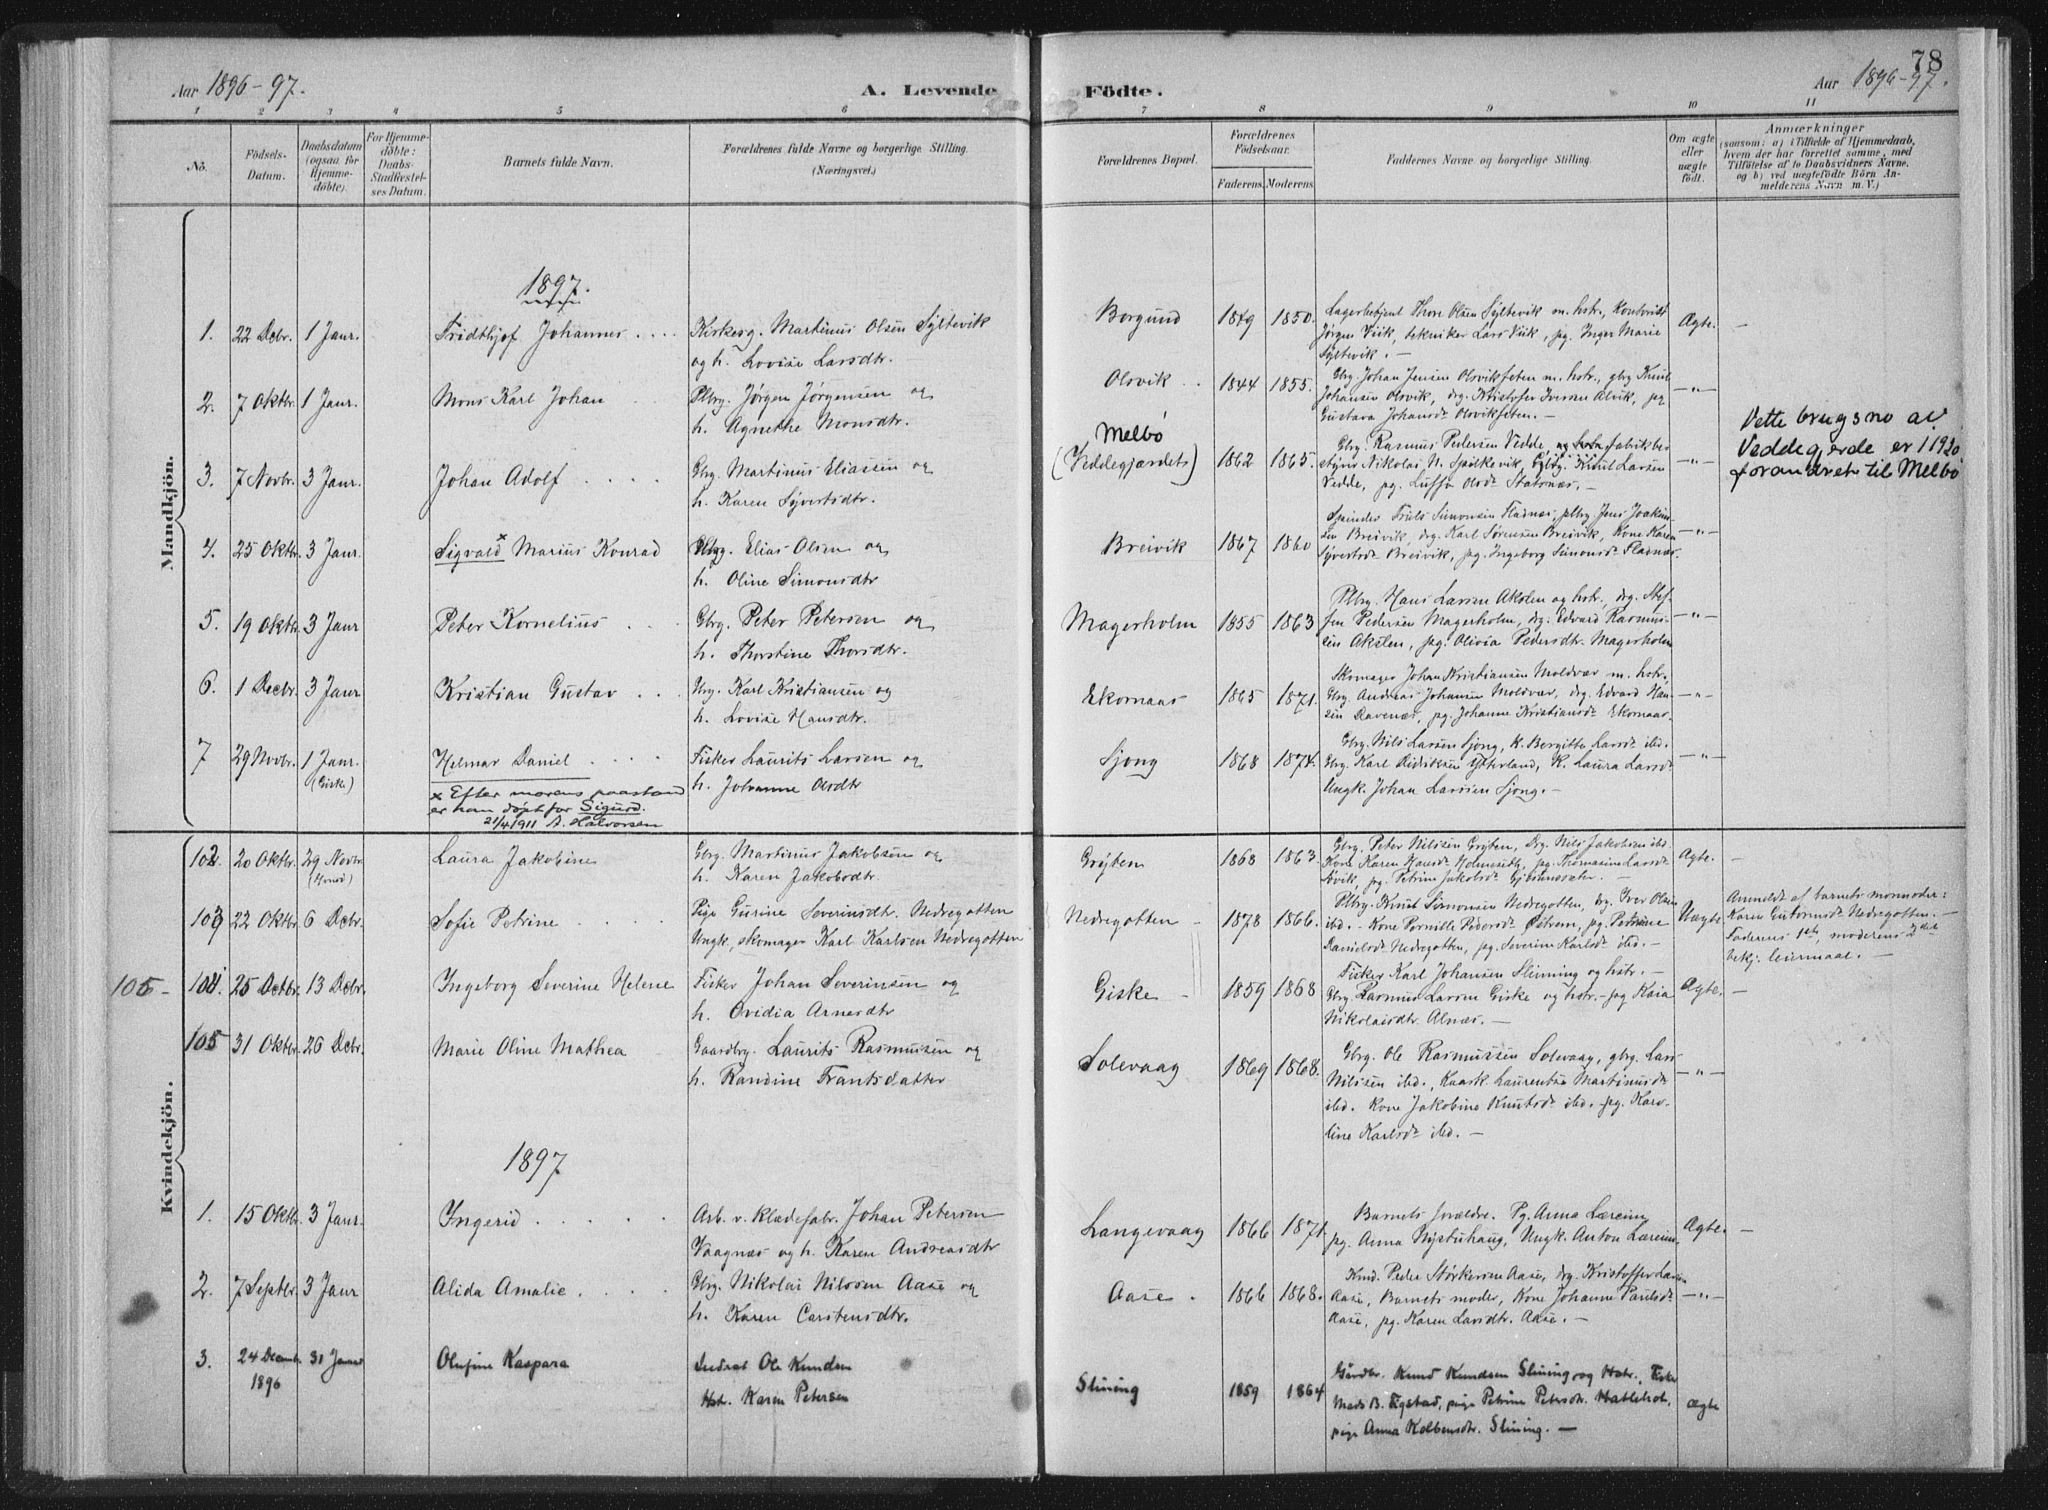 78
Aar 1896-97.
A. Levende
Födte.
Aar 1896-97.
1 2 3 4 5 6 7 8 9 10 11
No.
Födsels-
Datum.
Daabsdatum
(ogsaa for
Hjemme-
döbte).
For Hjemme-
döbte:
Daabs-
Stadfæstel-
ses Datum.
Barnets fulde Navn.
Forældrenes fulde Navne og borgerlige Stilling.
(Næringsvei.)
Forældrenes Bopæl.
Forældrenes
Födselsaar.
Faderens. Moderens.
Faddernes Navne og borgerlige Stilling.
Om ægte
eller
uægte
födt.
Anmærkninger
(saasom: a) i Tilfælde af Hjemmedaab,
hvem der har forrettet samme, med
Tilföielse af to Daabsvidners Navne,
og b) ved uægtefödte Börn An-
melderens Navn m. V.)
Mandkjön.
1897.
1. 22 Decbr. 1 Janr. Fridthjof Johannes Kirkesg. Martinus Olsen Syltevik
og h. Lovise Larsdtr.
Borgund 1849 1850. Lagerbetjent Thore Olsen Syltevik m. hstr., Kontorist
Jørgen Viik, tekniker Lars Viik, pg. Inger Marie
Syltevik. —
Ægte. —
2. 7 Oktbr. 1 Janr. Mons Karl Johan Plbrg. Jørgen Jørgensen og
h. Agnethe Monsdtr.
Olsvik 1844 1855. Gbrg. Johan Jensen Olsviksæten m. hstr., gbrg. Knut
Johansen Olsvik, drg. Kristofer Iversen Alvik, pg.
Gustava Johansdt Olsviksæten. —
— „ —
3. 7 Novbr. 3 Janr. Johan Adolf Gbrg. Martinus Eliassen og
h. Karen Syvertsdtr.
Melbö
(Veddegjærdets) 1862 1865. Gbrg. Rasmus Pedersen Vedde, og fabrikbe-
styrer Nikolai N. Spilkevik, Gbrg. Knut Larsen
Vedde, pg. Luffa Olsdt Statsnæs. —
— „ —
Dette brugsno av
Veddegjerde er i 1920
forandret til Melbö
4. 25 Oktbr. 3 Janr. Sigvald x Marius Konrad Plbrg. Elias Olsen og
h. Oline Simonsdtr
Breivik 1867 1860 Spinder Truls Simonsen Fladnæs, plbrg. Jens Joakim-
sen Breivik, drg. Karl Sørensen Breivik, Kone Karen
Syvertsdt Breivik, pg. Ingeborg Simonsdt Fladnæs.
— „ —
5. 19 Oktbr. 3 Janr Peter Kornelius Gbrg. Peter Petersen og
h. Thorstine Thorsdtr.
Magerholm 1855 1863 Plbrg. Hans Larsen Akslen og hstr., drg. Stef-
fen Pedersen Magerholm, drg. Edvard Rasmus-
sen Akslen, pg. Olivia Pedersdtr. Magerholm
— „ —
6. 1 Decbr. 3 Janr Kristian Gustav Gbrg. Karl Kristiansen og
h. Lovise Hansdtr.
Ekornaas 1865 1871. Skomager Johan Kristiansen Moldvær m. hstr.,
Gbrg. Andreas Johansen Moldvær, drg. Edvard Han-
sen Davenæs, pg. Johanne Kristiansdt Ekornaas.
— „ —
7 29 Novbr. 1 Janr.
(Giske)
Hilmar Daniel Fisker Laurits Larsen og
h. Johanne Olsdtr
Sjong 1868 1874. Gbrg. Nils Larsen Sjong, K. Bergitte Larsdt. ibd.
Gbrg. Karl Didriksen Ytterland, K. Laura Larsdt
Ungk. Johan Larssen Sjong. —
— „ —
x Efter morens paastand
er han döpt for Sigurd.
21/4 1911 A. Halvorsen
Kvindekjön.
102. 20 Oktbr. 29 Novbr. Laura Jakobine Gbrg. Martinus Jakobsen og
h. Karen Jakobsdtr.
Gryten 1868 1863. Gbrg. Peter Nilssen Gryten, Drg. Nils Jakobsen ibd.
Kone Karen Hansdt Holmeseth, pg. Thomasine Larsdt
pg. Petrine Jakobsdt
Ægte. —
103 22 Oktbr 6 Decbr. Sofie Petrine Pige Gurine Severinsdtr. Nedregotten
Ungk., skomager Karl Karlsen Nedregotten
Nedregotten 1878 1866. Plbrg. Knut Simonsen Nedregotten, drg. Iver Olsen
ibd. Kone Pernille Pedersdt Østrem, pg. Petrine
Danielsdt Nedregotten, pg. Severine Karlsdt ibd. —
Uægte
Anmeldt af barnets mormoder:
Karen Guttormsdt Nedregotten. —
Faderens 1ste, moderens 2det
bekj. leiermaal. —
105 -
104. 25 Octbr. 13 Decbr. Ingeborg Severine Helene Fisker Johan Severinsen og
h. Ovidia Arnesdtr
Giske 1859 1868 Fisker Karl Johansen Slinning og hstr. —
Gbrg. Rasmus Larsen Giske og hstr. — pg. Kaia
Nikolaisdtr. Alnæs. —
Ægte. —
105 31 Oktbr. 26 Decbr. Marie Oline Mathea Gaardbrg. Laurits Rasmussen og
h. Randine Frantsdatter
Solevaag 1869 1868. Gbrg. Ole Rasmussen Solevaag, gbrg. Lars
Nilssen ibd., Kaarsk. Laurentse Martinusdt
ibd. Kone Jakobine Knutsdt ibd. pg. Karo-
line Karlsdt ibd. —
— „ —
1897
1. 15 Oktbr. 3 Janr. Ingerid Arb. v. Klædefabr. Johan Petersen
Vaagnæs og h. Karen Andreasdtr
Langevaag 1866 1871. Barnets forældre. Pg. Anna Læreim,
pg. Anna Nystuhaug, Ungk. Anton Læreim.
Ægte. —
2. 7 Septbr. 3 Janr Alida Amalie Gbrg. Nikolai Nilssen Aase og
h. Karen Carstensdtr.
Aase. 1866 1868. Kmd. Peder Størkersen Aase, drg. Kristoffer Larsen
Aase, Barnets moder, Kone Johanne Paulsdt
Aase, pg. Karen Larsdtr. Aase. —
— „ —
3. 24 Decemb. 31 Januar Olufine Kaspara Inderst Ole Knudsen
1896
Hstr. Karen Petersen
Slining 1859 1864 Gårdbr. Knud Knudsen Slining og Hstr., Fisker
Mads B. Tigstad, pige Petrine Petersdtr. Hatlehol,
pige Anna Kolbensdtr. Slining. —
ægte